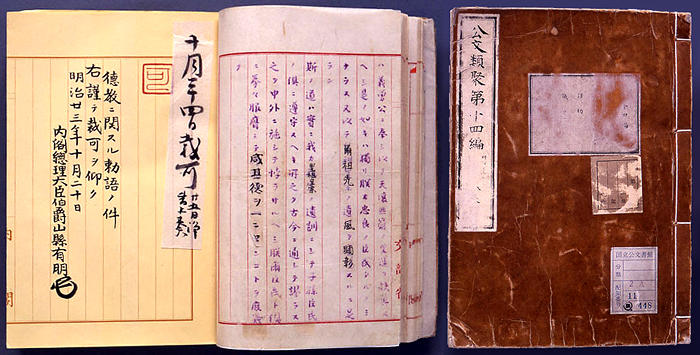 十月二十四日裁可
德教ニ関スル勅語ノ件
右謹テ裁可ヲ仰ク
明治廿三年十月二十日
内閣總理大臣伯爵山縣有朋
ハ義勇公ニ奉シ以テ天壤無窮ノ皇運ヲ扶翼ス
ヘシ是ノ如キハ獨リ朕カ忠良ノ臣民タルノミ
ナラス又以テ爾祖先ノ遺風ヲ顯彰スルニ足
ラン
斯ノ道ハ實ニ我カ皇祖皇宗ノ遺訓ニシテ子孫臣民
ノ俱ニ遵守スヘキ所之ヲ古今ニ通シテ謬ラス
之ヲ中外ニ施シテ悖ラス朕爾臣民ト俱
ニ拳々服膺シテ咸其德ヲ一ニセンコトヲ庶幾
フ
文部省
公文類聚第十四編
国立公文書館
分類
2A
11
448